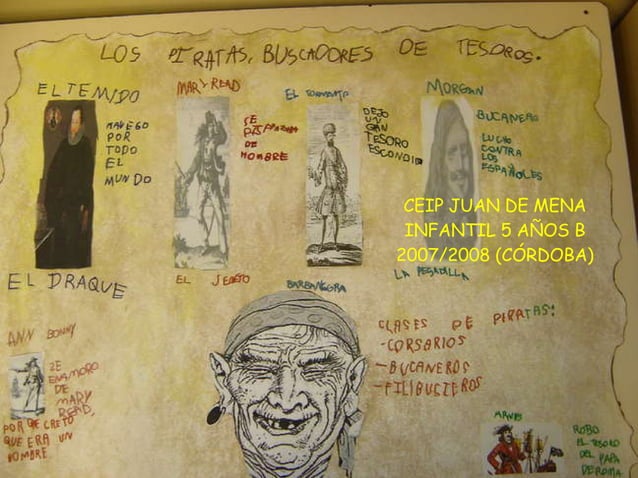 LOS PIRATAS, BUSCADORES DE TESOROS.
EL TEMIDO
NAVEGO
POR
TODO
EL
MUNDO
EL DRAQUE
MARY READ
SE
DISFRAZABA
DE
HOMBRE
EL SECRETO
EL TORMENTO
DEJO
UN
GAN
TESORO
ESCONDIDO
BARBANEGRA
MORGAN
BUCANERO
LUCHO
CONTRA
LOS
ESPAÑOLES
LA PESADILLA
CEIP JUAN DE MENA
INFANTIL 5 AÑOS B
2007/2008 (CÓRDOBA)
ANN BONNY
SE
ENAMORO
DE
MARY
READ,
PORQE CREIO
QUE ERA UN
HOMBRE
CLASES DE PIRATAS:
-CORSARIOS
-BUCANEROS
-FILIBUCTEROS
ROBO
EL TESORO
DEL PAPA
DE ROMA